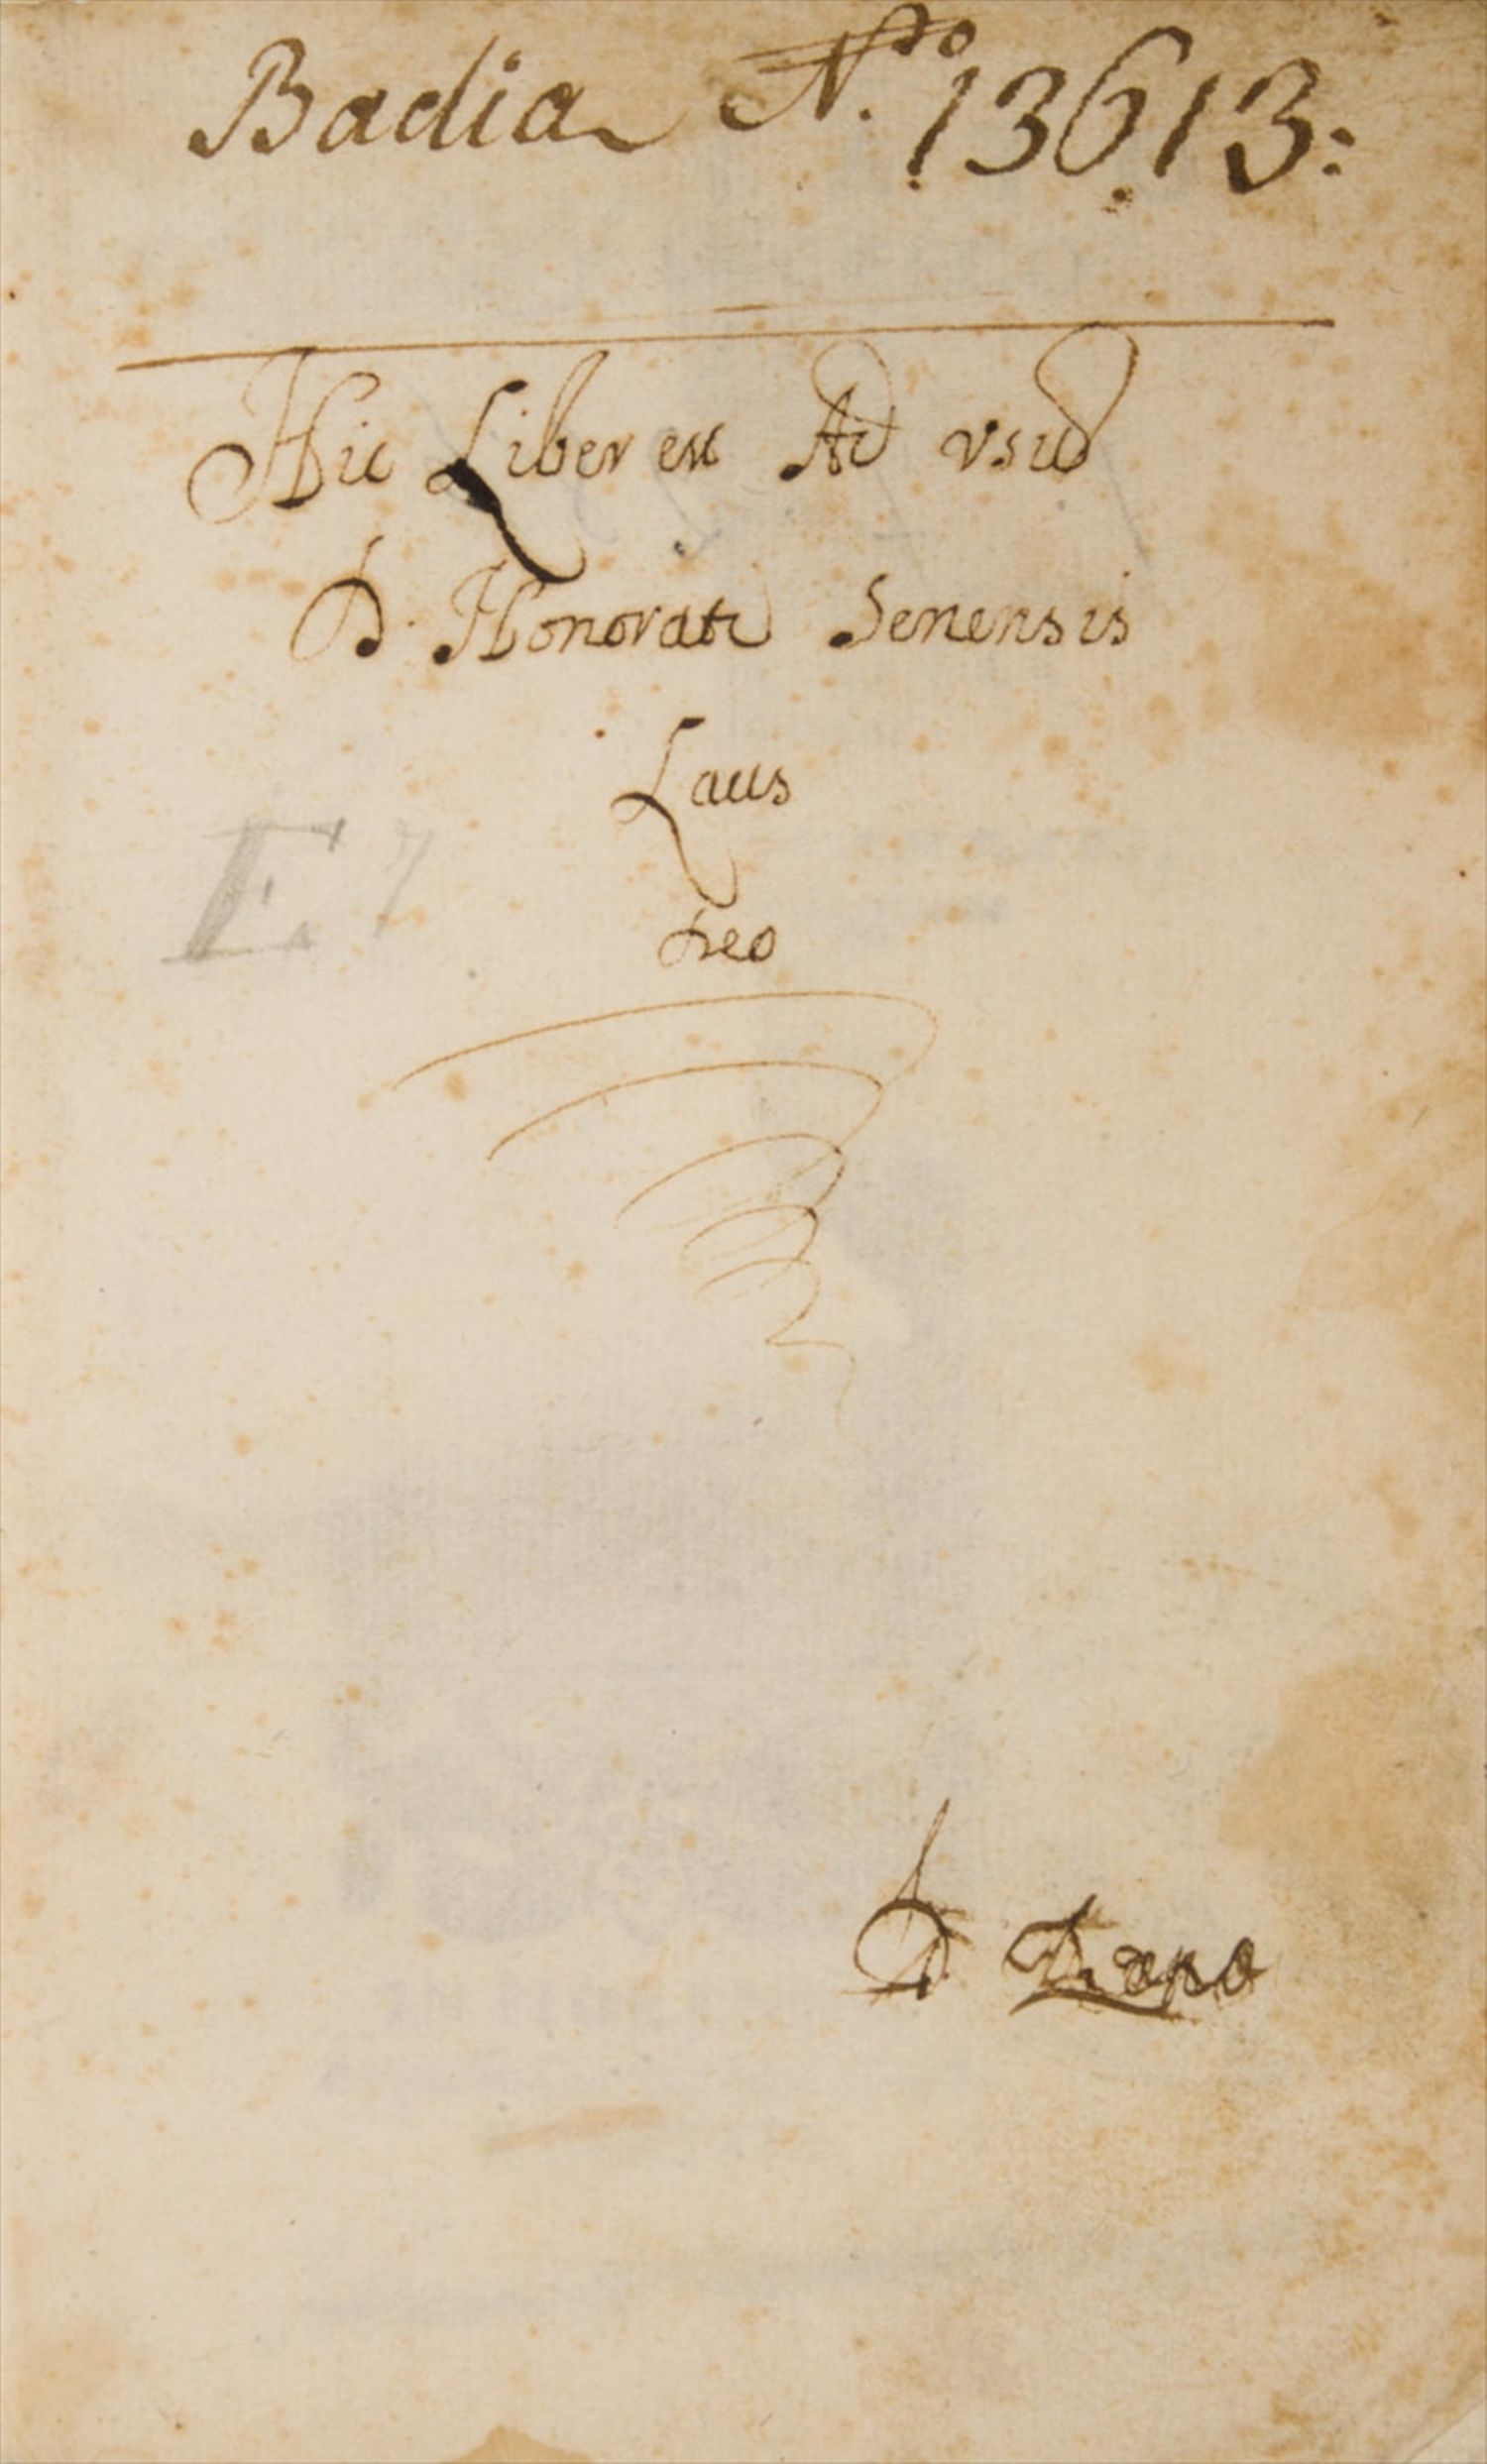 Badia N.º 13613:
Hic Liber est Ad vsū
D. Honorati Senensis
Laus
Deo
E 7
D